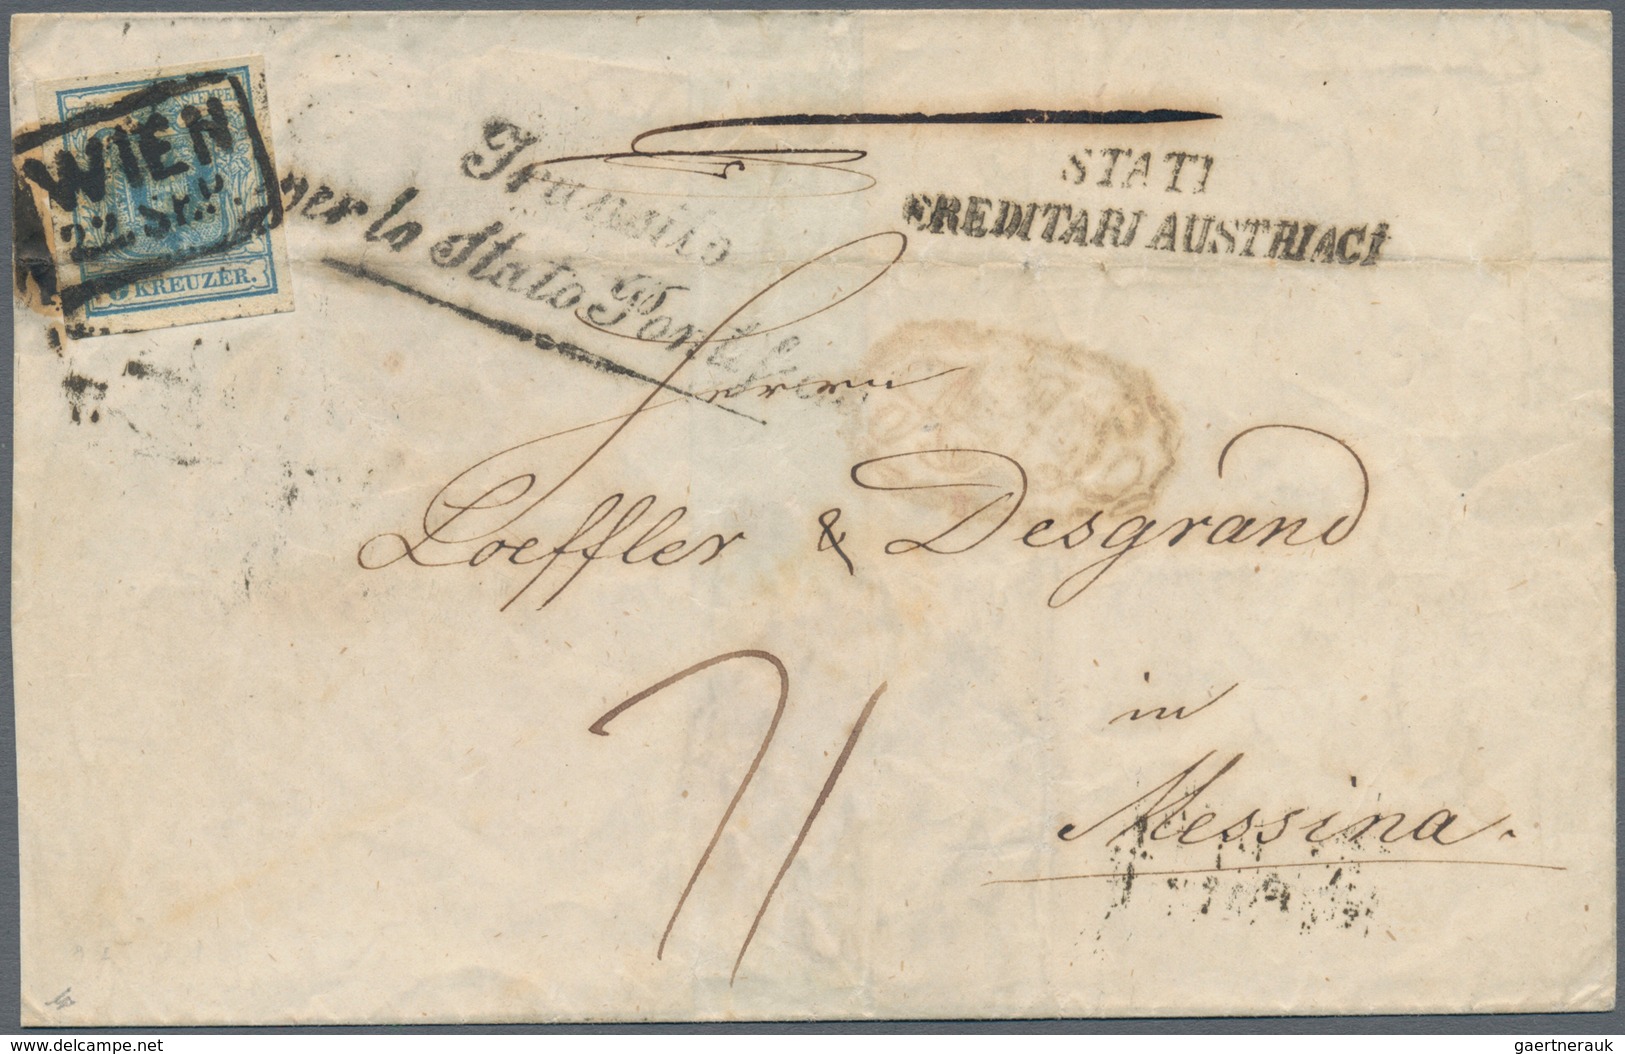 WIEN
22. SEP.
9 KREUZER.
Transito
per lo Stato Pontificio
STATI
EREDITARJ AUSTRIACI
Herrn
Loeffler & Desgrand
in
Messina.
www.delcampe.net
gaertnerauk